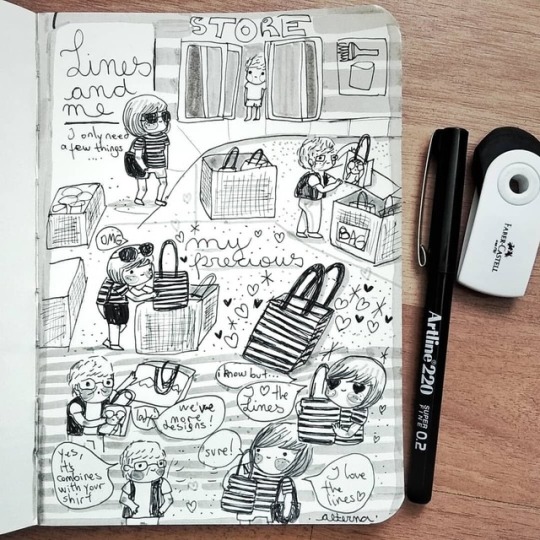 STORE
Lines
and
me
I only need
a few things
...
BAG
OMG
my
precious
i know but...
I ♡ the
Lines
we've
more
designs!
yes,
its
combines
with your
shirt
sure!
I love
the
lines♡
.alterna.
Artline 220
SUPER
FINE 0.2
FABER-CASTELL